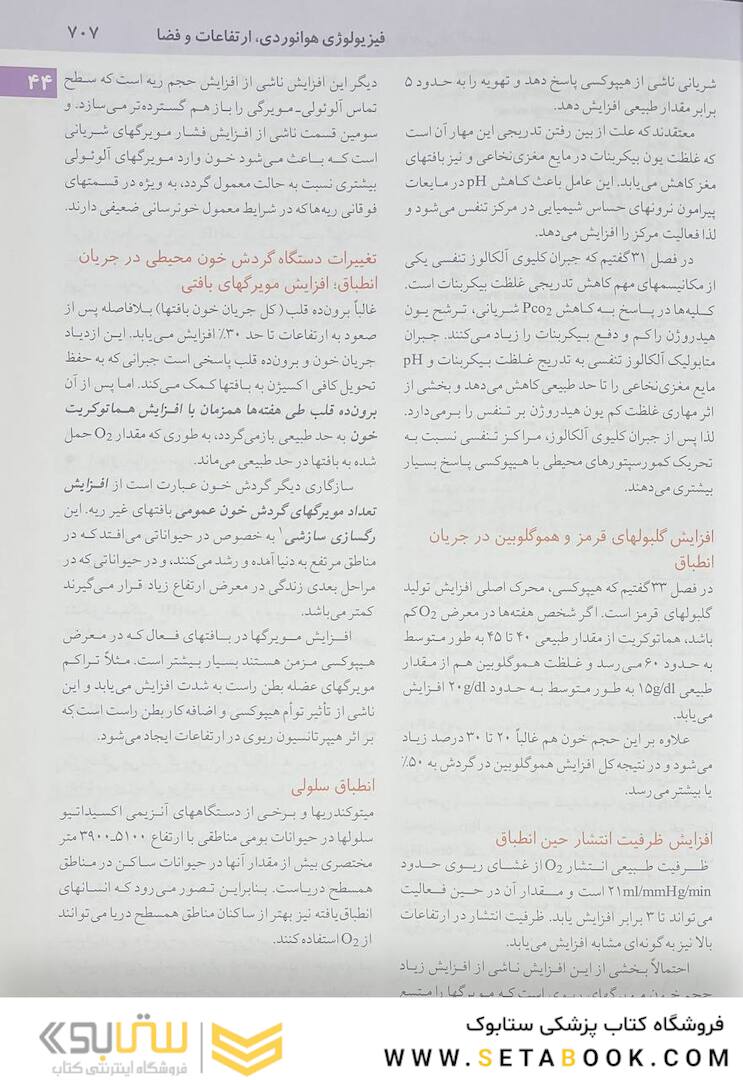 فیزیولوژی هوانوردی، ارتفاعات و فضا ۷۰۷
۴۴
شریانی ناشی از هیپوکسی پاسخ دهد و تهویه را به حدود ۵
برابر مقدار طبیعی افزایش دهد.
معتقدند که علت از بین رفتن تدریجی این مهار آن است
که غلظت یون بیکربنات در مایع مغزی‌نخاعی و نیز بافتهای
مغز کاهش می‌یابد. این عامل باعث کاهش pH در مایعات
پیرامون نرونهای حساس شیمیایی در مرکز تنفس می‌شود و
لذا فعالیت مرکز را افزایش می‌دهد.
در فصل ۳۱ گفتیم که جبران کلیوی آلکالوز تنفسی یکی
از مکانیسمهای مهم کاهش تدریجی غلظت بیکربنات است.
کلیه‌ها در پاسخ به کاهش Pco2 شریانی، ترشح یون
هیدروژن را کم و دفع بیکربنات را زیاد می‌کنند. جبران
متابولیک آلکالوز تنفسی به تدریج غلظت بیکربنات و pH
مایع مغزی‌نخاعی را تا حد طبیعی کاهش می‌دهد و بخشی از
اثر مهاری غلظت کم یون هیدروژن بر تنفس را برمی‌دارد.
لذا پس از جبران کلیوی آلکالوز، مراکز تنفسی نسبت به
تحریک کمورسپتورهای محیطی با هیپوکسی پاسخ بسیار
بیشتری می‌دهند.
افزایش گلبولهای قرمز و هموگلوبین در جریان
انطباق
در فصل ۳۳ گفتیم که هیپوکسی، محرک اصلی افزایش تولید
گلبولهای قرمز است. اگر شخص هفته‌ها در معرض O2 کم
باشد، هماتوکریت از مقدار طبیعی ۴۰ تا ۴۵ به طور متوسط
به حدود ۶۰ می‌رسد و غلظت هموگلوبین هم از مقدار
طبیعی ۱۵g/dl به طور متوسط به حدود ۲۰g/dl افزایش
می‌یابد.
علاوه بر این حجم خون هم غالباً ۲۰ تا ۳۰ درصد زیاد
می‌شود و در نتیجه کل افزایش هموگلوبین در گردش به ۵۰٪
یا بیشتر می‌رسد.
افزایش ظرفیت انتشار حین انطباق
ظرفیت طبیعی انتشار O2 از غشای ریوی حدود
۲۱ml/mmHg/min است و مقدار آن در حین فعالیت
می‌تواند تا ۳ برابر افزایش یابد. ظرفیت انتشار در ارتفاعات
بالا نیز به گونه‌ای مشابه افزایش می‌یابد.
احتمالاً بخشی از این افزایش ناشی از افزایش زیاد
حجم خون مویرگهای ریوی است که مویرگها را متسع
دیگر این افزایش ناشی از افزایش حجم ریه است که سطح
تماس آلوئولی‌ـ‌مویرگی را باز هم گسترده‌تر می‌سازد. و
سومین قسمت ناشی از افزایش فشار مویرگهای شریانی
است که باعث می‌شود خون وارد مویرگهای آلوئولی
بیشتری نسبت به حالت معمول گردد، به ویژه در قسمتهای
فوقانی ریه‌ها که در شرایط معمول خونرسانی ضعیفی دارند.
تغییرات دستگاه گردش خون محیطی در جریان
انطباق؛ افزایش مویرگهای بافتی
غالباً برون‌ده قلب (کل جریان خون بافتها) بلافاصله پس از
صعود به ارتفاعات تا حد ۳۰٪ افزایش می‌یابد. این ازدیاد
جریان خون و برون‌ده قلب پاسخی است جبرانی که به حفظ
تحویل کافی اکسیژن به بافتها کمک می‌کند. اما پس از آن
برون‌ده قلب طی هفته‌ها همزمان با افزایش هماتوکریت
خون به حد طبیعی بازمی‌گردد، به طوری که مقدار O2 حمل
شده به بافتها در حد طبیعی می‌ماند.
سازگاری دیگر گردش خون عبارت است از افزایش
تعداد مویرگهای گردش خون عمومی بافتهای غیر ریه. این
رگسازی سازشی۱ به خصوص در حیواناتی می‌افتد که در
مناطق مرتفع به دنیا آمده و رشد می‌کنند، و در حیواناتی که در
مراحل بعدی زندگی در معرض ارتفاع زیاد قرار می‌گیرند
کمتر می‌باشد.
افزایش مویرگها در بافتهای فعال که در معرض
هیپوکسی مزمن هستند بسیار بیشتر است. مثلاً تراکم
مویرگهای عضله بطن راست به شدت افزایش می‌یابد و این
ناشی از تأثیر توأم هیپوکسی و اضافه‌کار بطن راست است که
بر اثر هیپرتانسیون ریوی در ارتفاعات ایجاد می‌شود.
انطباق سلولی
میتوکندریها و برخی از دستگاههای آنزیمی اکسیداتیو
سلولها در حیوانات بومی مناطقی با ارتفاع ۵۱۰۰ـ۳۹۰۰ متر
مختصری بیش از مقدار آنها در حیوانات ساکن در مناطق
همسطح دریاست. بنابراین تصور می‌رود که انسانهای
انطباق‌یافته نیز بهتر از ساکنان مناطق همسطح دریا می‌توانند
از O2 استفاده کنند.
فروشگاه کتاب پزشکی ستابوک
WWW.SETABOOK.COM
ستابوک
فروشگاه اینترنتی کتاب